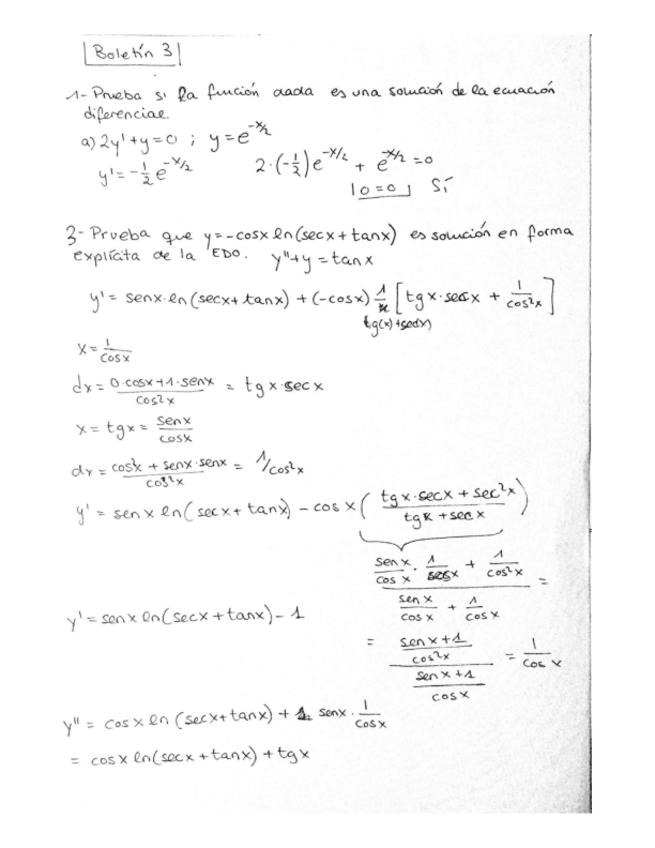 Boletín 3
1- Prueba si la función dada es una solución de la ecuación
diferencial.
a) 2y' + y = 0 ; y = e^{-x/2}
y' = -1/2 e^{-x/2}   2·(-1/2)e^{-x/2} + e^{-x/2} = 0
0 = 0   Sí
3- Prueba que y = -cosx ln(secx + tanx) es solución en forma
explícita de la EDO.   y'' + y = tanx
y' = senx·ln(secx + tanx) + (-cosx) 1/x [tgx·secx + 1/cos²x]
tg(x)+sec(x)
x = 1/cosx
dx = (0·cosx + 1·senx)/cos²x = tgx·secx
x = tgx = senx/cosx
dx = (cos²x + senx·senx)/cos²x = 1/cos²x
y' = senx ln(secx + tanx) - cosx ((tgx·secx + sec²x)/(tgx + secx))
(senx/cosx · 1/cosx + 1/cos²x)/(senx/cosx + 1/cosx) =
y' = senx ln(secx + tanx) - 1
= ((senx + 1)/cos²x)/((senx + 1)/cosx) = 1/cosx
y'' = cosx ln(secx + tanx) + senx · 1/cosx
= cosx ln(secx + tanx) + tgx